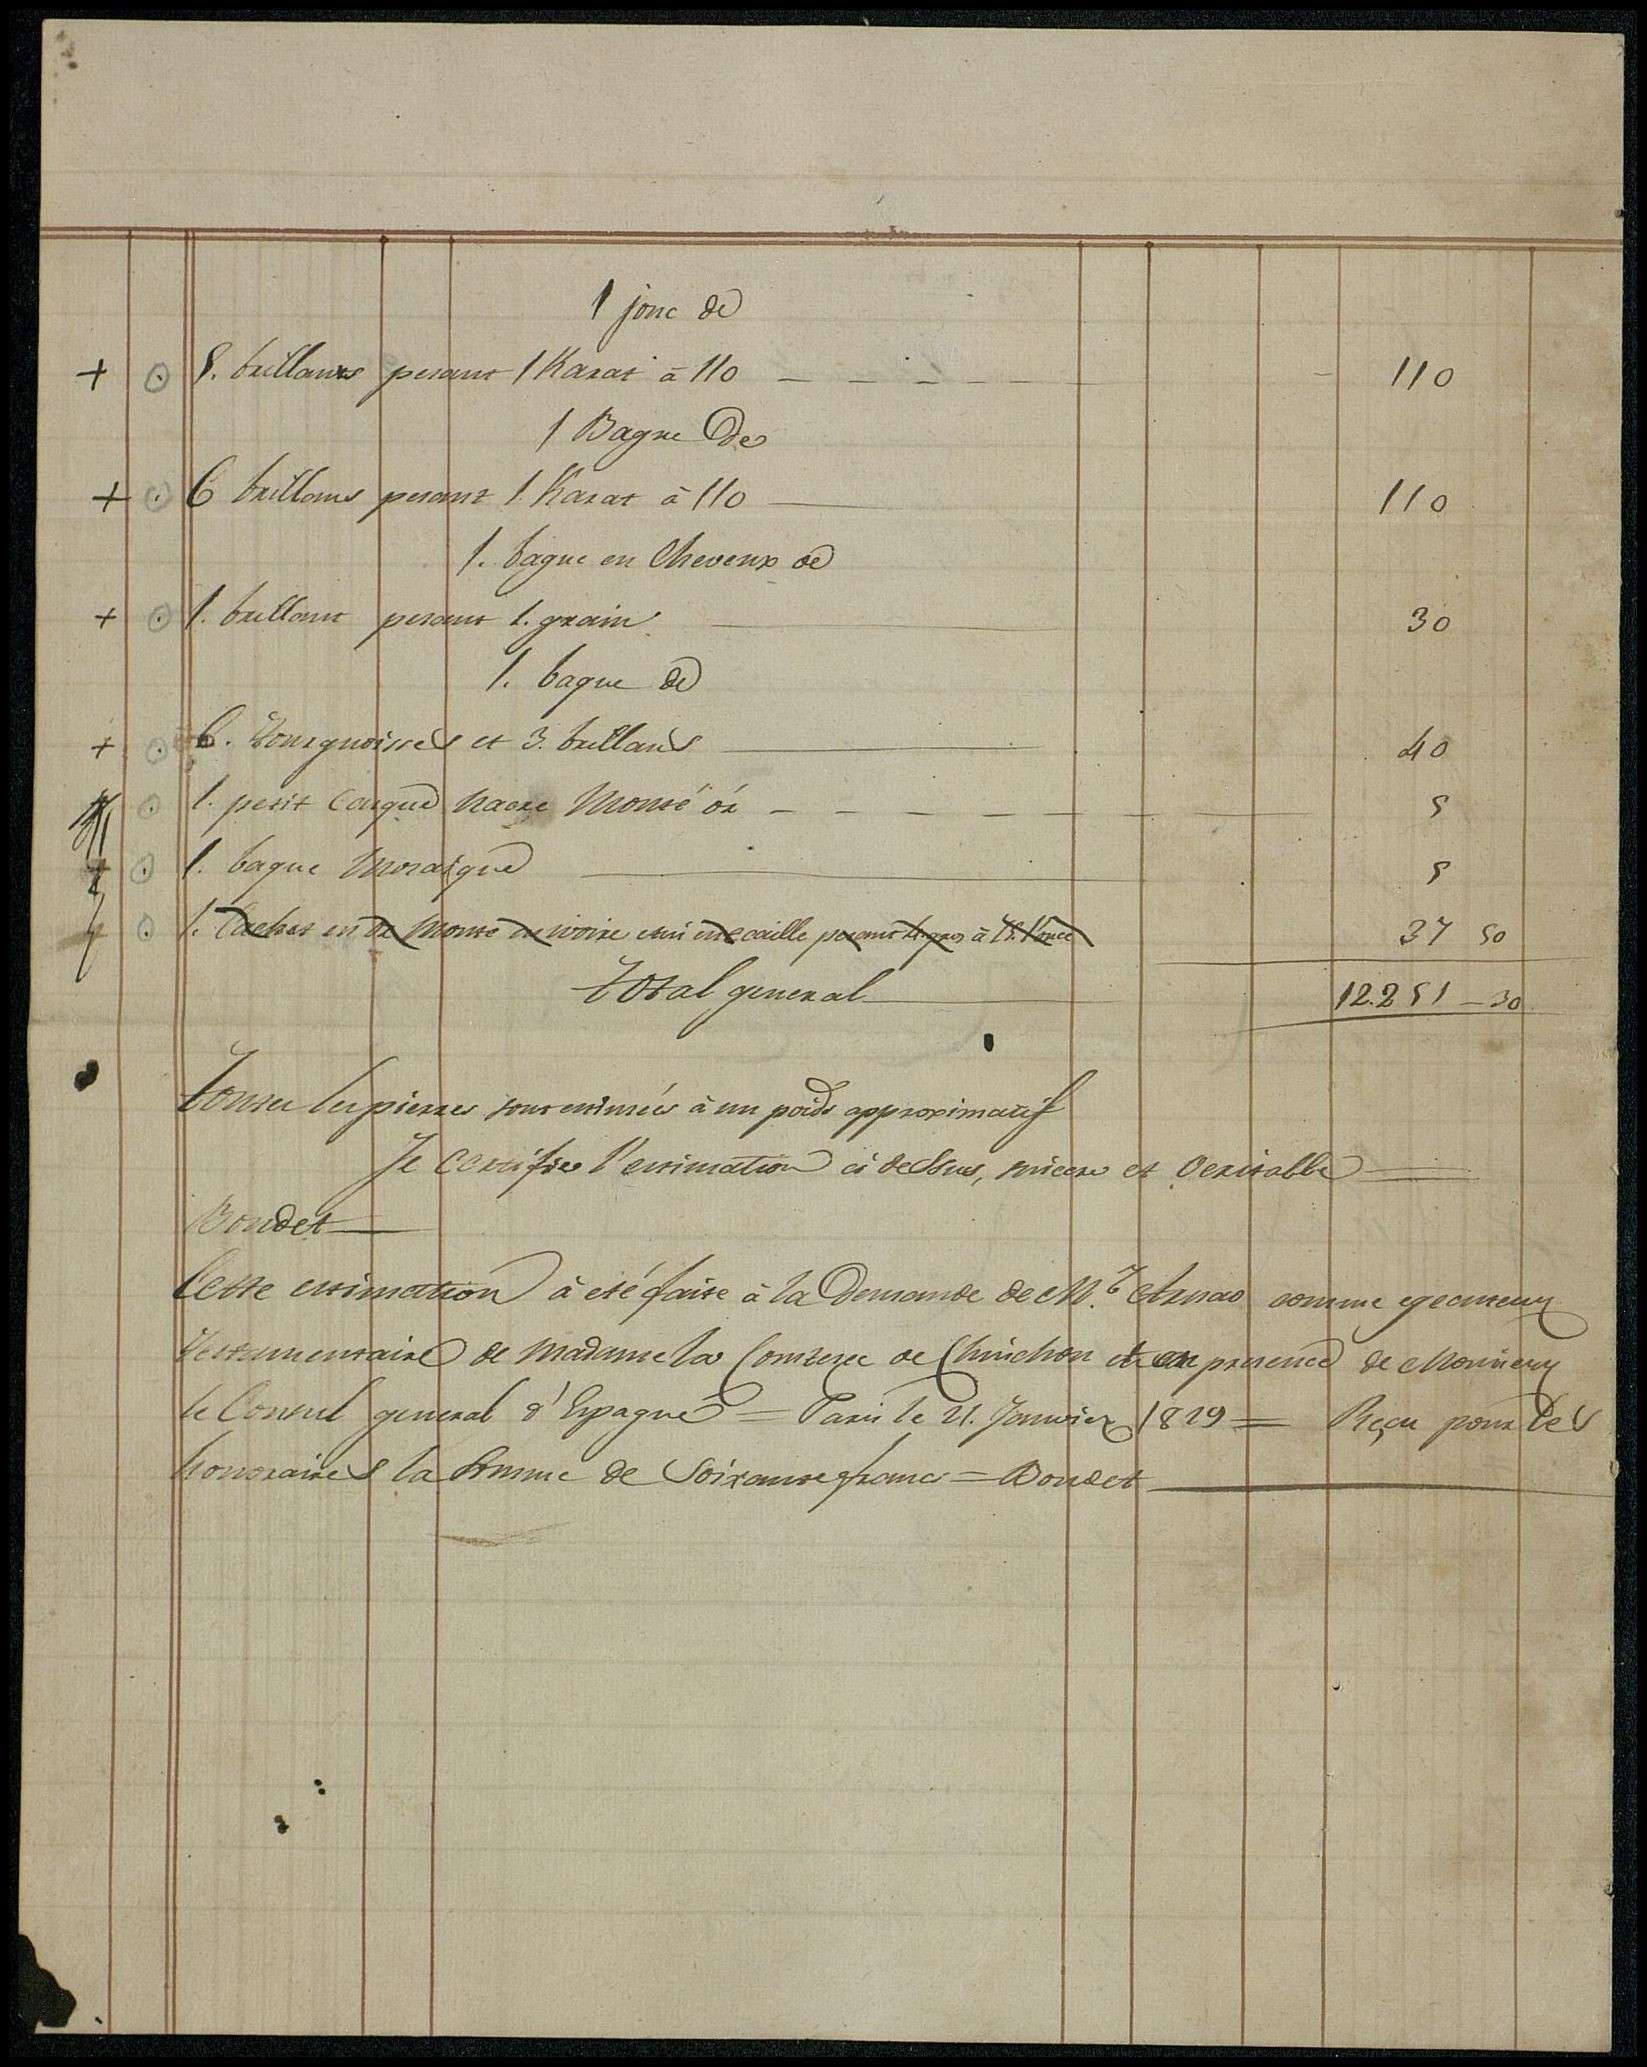 1 jonc de
+ 8. brillants pesant 1 Karat à 110 110
1 Bague de
+ 6 brillans pesant 1. Karat à 110 110
1. bague en Cheveux de
+ 1. brillant pesant 1. grain 30
1. bague de
+ 6. tourquoisses et 3. brillans 40
1. petit Casque nacre Monté or 5
1. bague Mosaïque 5
1. Cachet en or Monté en ivoire etui en ecaille pesant gros à l'once 37 50
total general 12.251 – 30
toutes les pierres sont estimées à un poids approximatif
Je certifie l'estimation ci dessus, sincere et veritable
Boudet
Cette estimation à eté faite à la Demande de Mr. Arnao comme executeur
testamentaire de Madame la Comtesse de Chinchon et en presence de Monsieur
le Consul general d'Espagne = Paris le 21. Janvier 1829 = Reçu pour les
honoraires la somme de Soixante francs = Boudet